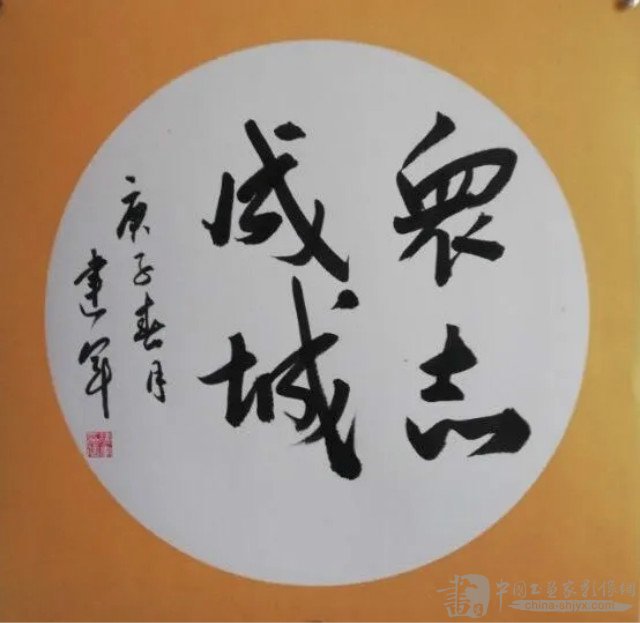 眾志
成城
庚子春月
建军
中国工艺家影像网
china-shjyx.com